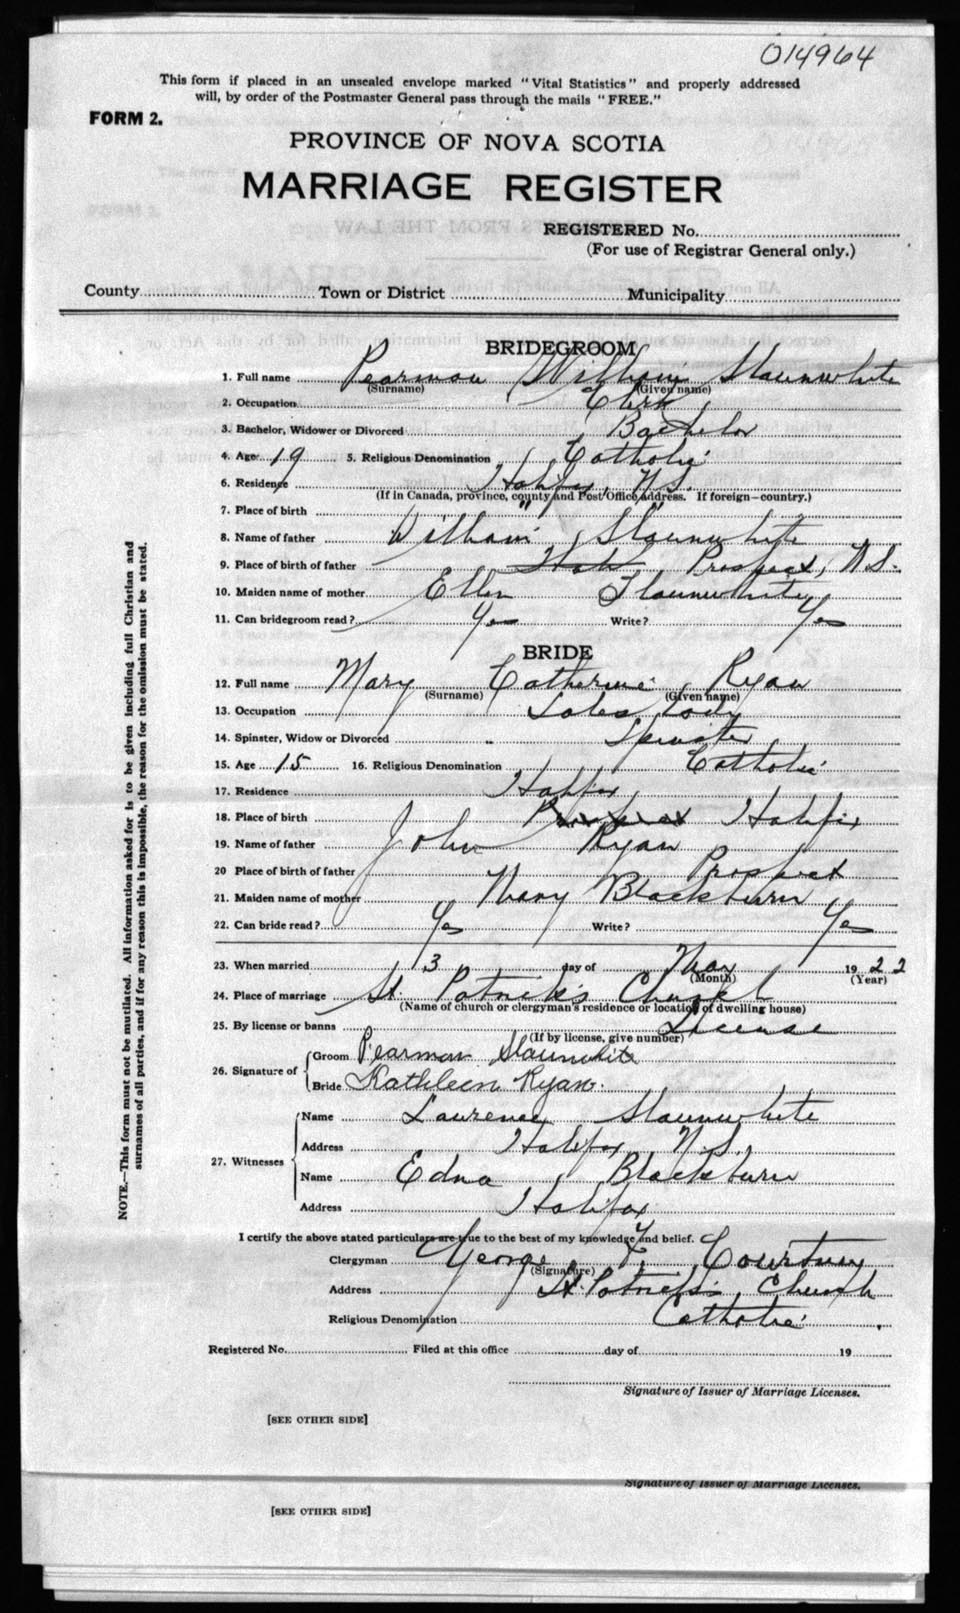 014964
This form if placed in an unsealed envelope marked "Vital Statistics" and properly addressed
will, by order of the Postmaster General pass through the mails "FREE."
FORM 2.
PROVINCE OF NOVA SCOTIA
MARRIAGE REGISTER
REGISTERED No.
(For use of Registrar General only.)
County Town or District Municipality
BRIDEGROOM
1. Full name Pearman William Slaunwhite
(Surname) (Given name)
2. Occupation Clerk
3. Bachelor, Widower or Divorced Bachelor
4. Age 19 5. Religious Denomination Catholic
6. Residence Halifax, N.S.
(If in Canada, province, county and Post Office address. If foreign—country.)
7. Place of birth " "
8. Name of father William Slaunwhite
9. Place of birth of father Prospect, N.S.
10. Maiden name of mother Ellen Slaunwhite
11. Can bridegroom read? Yes Write? Yes
BRIDE
12. Full name Mary Catherine Ryan
(Surname) (Given name)
13. Occupation Sales Lady
14. Spinster, Widow or Divorced Spinster
15. Age 15 16. Religious Denomination Catholic
17. Residence Halifax
18. Place of birth Prospect Halifax
19. Name of father John Ryan
20 Place of birth of father Prospect
21. Maiden name of mother Mary Blackburn
22. Can bride read? Yes Write? Yes
23. When married 3 day of 1922
(Month) (Year)
24. Place of marriage St Patrick's Church
(Name of church or clergyman's residence or location of dwelling house)
25. By license or banns License
(If by license, give number)
26. Signature of Groom Pearman Slaunwhite
Bride Kathleen Ryan.
27. Witnesses Name Laurence Slaunwhite
Address Halifax N.S.
Name Edna Blackburn
Address Halifax
I certify the above stated particulars are true to the best of my knowledge and belief.
Clergyman George F. Courtney
(Signature)
Address St. Patrick's Church
Religious Denomination Catholic
Registered No. Filed at this office day of 19
Signature of Issuer of Marriage Licenses.
[SEE OTHER SIDE]
Signature of Issuer of Marriage Licenses.
[SEE OTHER SIDE]
NOTE.—This form must not be mutilated. All information asked for is to be given including full Christian and
surnames of all parties, and if for any reason this is impossible, the reason for the omission must be stated.